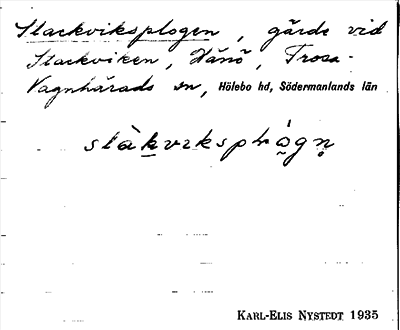 Stackviksplogen, gärde vid
Stackviken, Hånö, Trosa-
Vagnhärads sn, Hölebo hd, Södermanlands län
KARL-ELIS NYSTEDT 1935